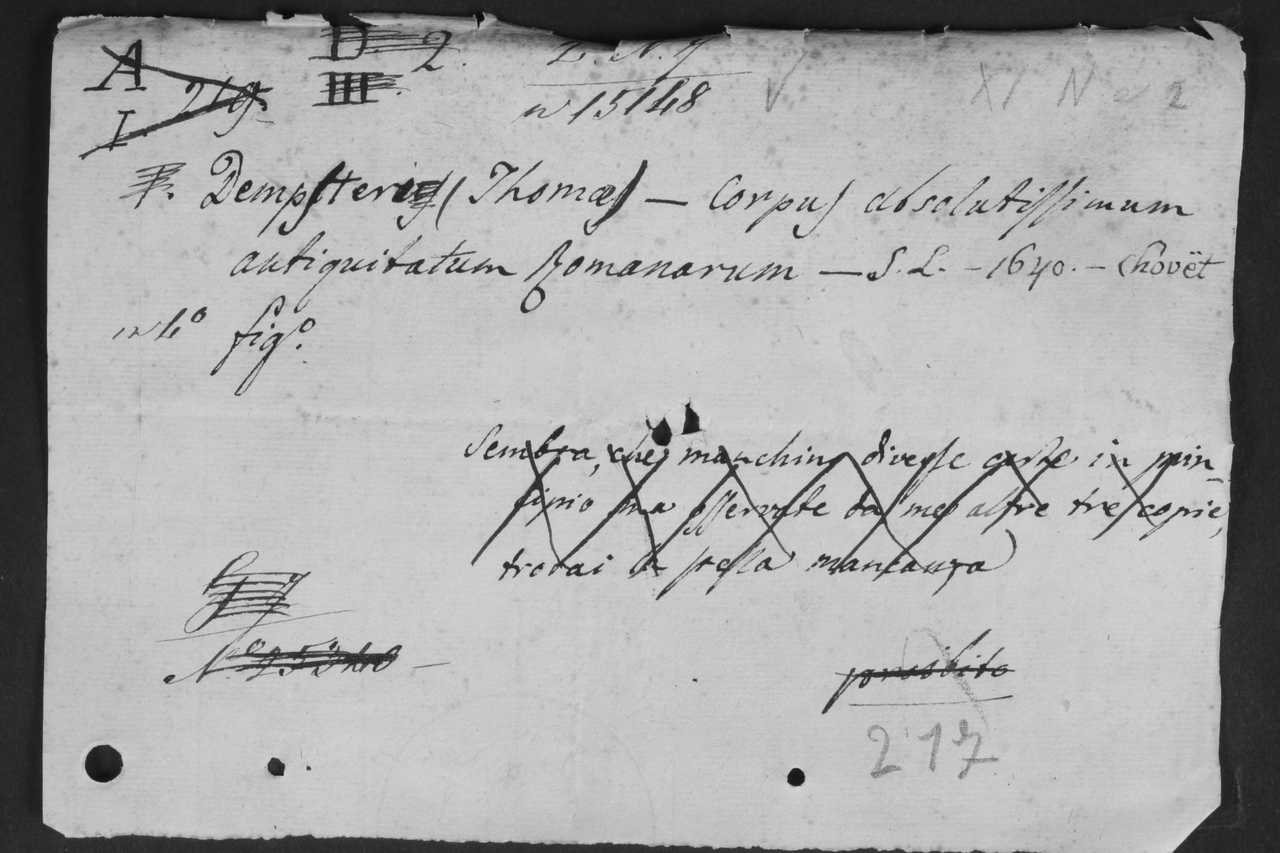 A
I. 219.
D
III. 2.
L. N. 7
n 15148
V
XI N 2
Dempsteri (Thomæ) — Corpus absolutissimum
antiquitatum Romanarum — S. L. - 1640. - Chovët
in 4.º figº.
Sembra, che manchino diverse carte in prin-
cipio ma osservate da me altre tre copie,
trovai la stessa mancanza
Nº
proibito
217